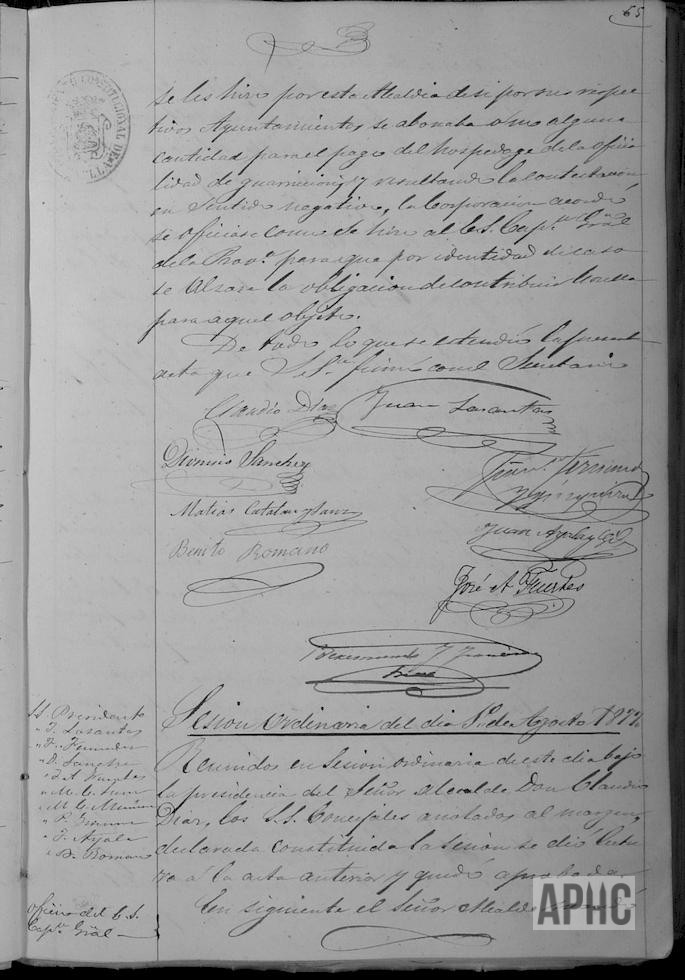 65
se les hizo por esta Alcaldia de si por sus respec
tivos Ayuntamientos se abonaba ó no alguna
cantidad para el pago del hospedage de la oficia
lidad de guarnicion, y resultando la contestacion
en sentido negativo, la Corporacion acordó
se oficiase como se hizo al E. S. Capⁿ. Gral
de la Provª. para que por identidad de caso
se alzase la obligacion de contribuir
para aquel objeto.
De todo lo que se estendió la present
acta que S. Sª. firmó con el Secretario
Claudio Diaz Juan Lasantas
Dionisio Sanchez
Matias Catalan y Sanz
Juan Ayala
Benito Romano
José A. Fuertes
Sesion ordinaria del dia 1º de Agosto 1877.
SS. Presidente
" J. Lasantas
" F. Fernandez
" D. Sanchez
" J. A. Fuertes
" M. C. Sanz
" M. C.
" P.
" J. Ayala
" B. Romano
Reunidos en Sesion ordinaria de este dia bajo
la presidencia del Señor Alcalde Don Claudio
Diaz, los S.S. Concejales anotados al margen,
declarada constituida la Sesion se dió lectu
ra á la acta anterior y quedó aprobada.
Oficio del E. S.
Capⁿ. Gral
En siguiente el Señor Alcalde
APHC